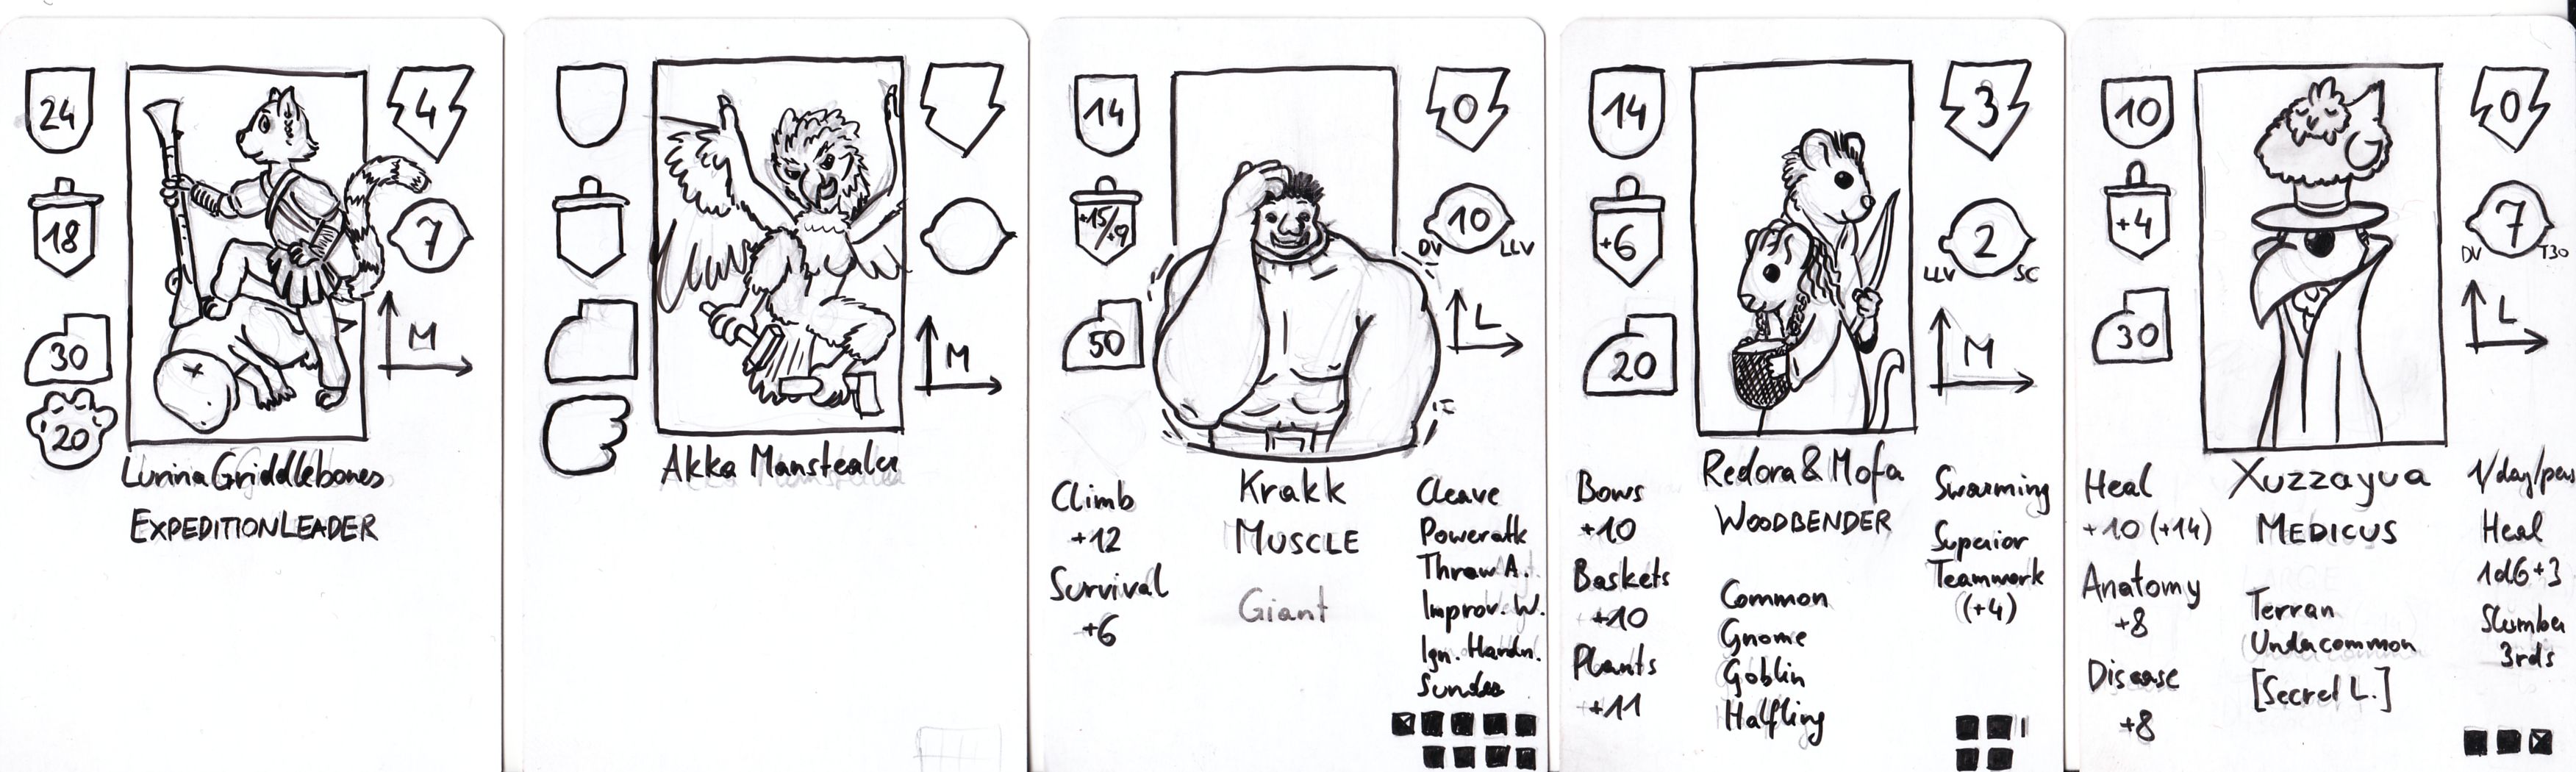 24
4
18
7
30
M
20
Lurina Griddlebones
EXPEDITIONLEADER
M
Akka Manstealer
14
0
+15/+9
10
DV
LLV
50
L
Climb
+12
Survival
+6
Krakk
MUSCLE
Giant
Cleave
Poweratk
Throw A.
Improv. W.
Ign. Hardn.
Sunder
14
3
+6
2
LLV
SC
20
M
Bows
+10
Baskets
+10
Plants
+11
Redora & Mofa
WOODBENDER
Common
Gnome
Goblin
Halfling
Swarming
Superior
Teamwork
(+4)
10
0
+4
7
DV
T30
30
L
Heal
+10 (+14)
Anatomy
+8
Disease
+8
Xuzzayua
MEDICUS
Terran
Undercommon
[Secret L.]
1/day/pers
Heal
1d6+3
Slumber
3rds